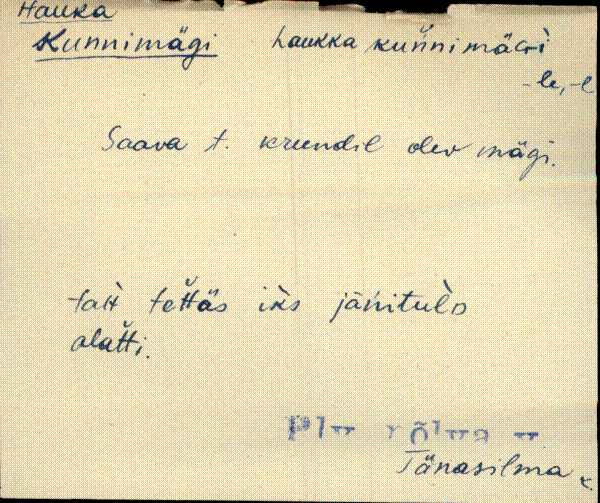 Hauka
Kunnimägi haukka kuňnimäGi
-le, -l
Saava t. krundil olev mägi.
tah̀ť teťtäs iks jāńitulò
alaťti.
Põlva
Tänasilma k.